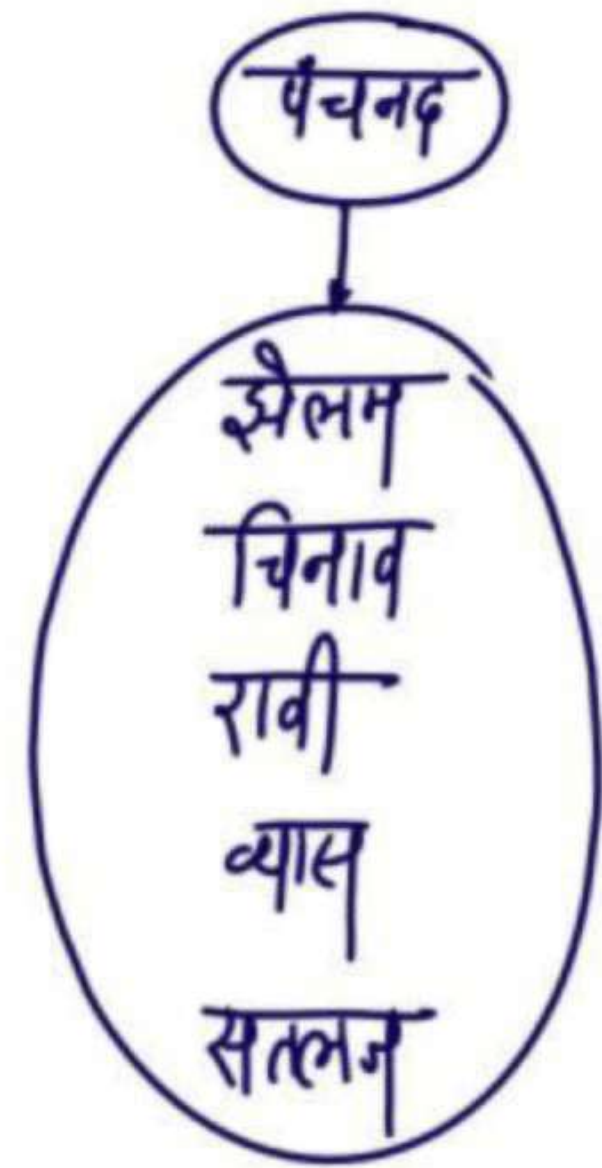 पंचनद
झेलम
चिनाव
रावी
व्यास
सतलज